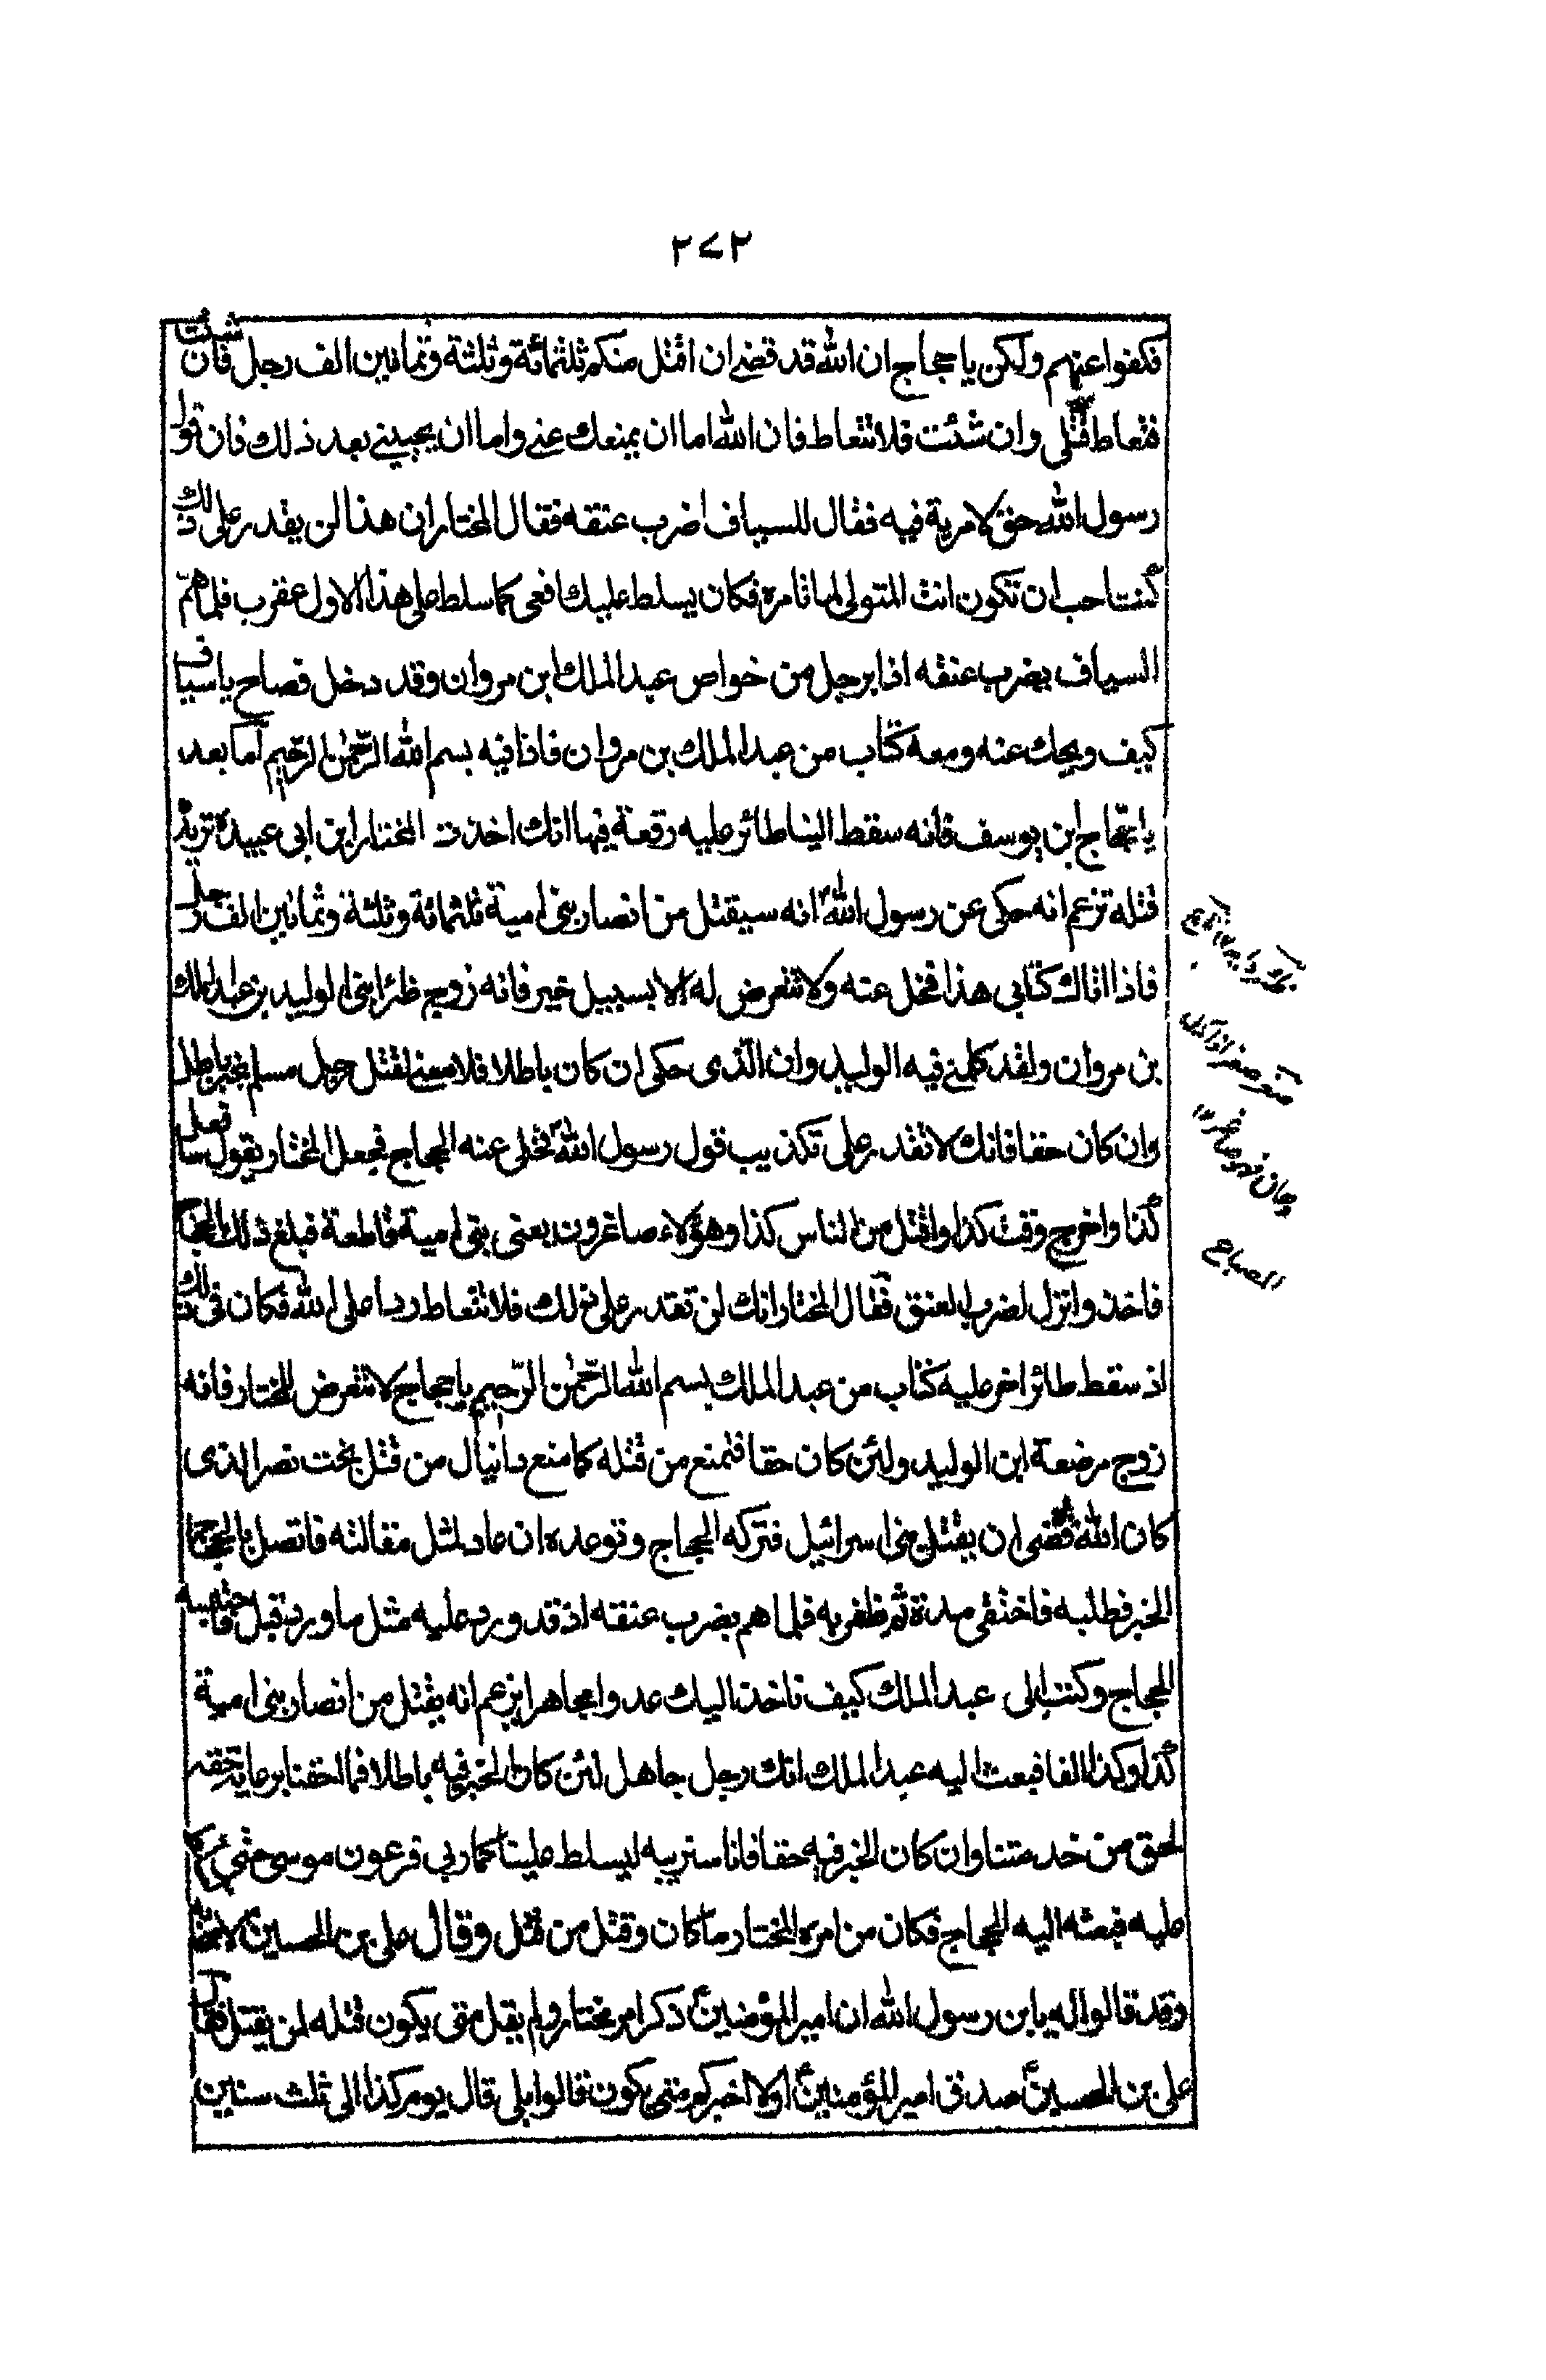 ٢٧٢
فكفوا عنهم ولكن يا حجاج ان الله قد قضى ان اقتل منكم ثلثمائة وثلثة وثمانين الف رجل فان شئت
فتعاط قتلى وان شئت فلا تتعاط فان الله اما ان يمنعك عنى واما ان يحيينى بعد ذلك فان قول
رسول الله حق لا مرية فيه فقال للسياف اضرب عنقه فقال المختار ان هذا لن يقدر على ذلك
كنت احب ان تكون انت المتولى لما تامره فكان يسلط عليك افعى كما سلط على هذا الاول عقرب فلما همّ
السياف بضرب عنقه اذا برجل من خواص عبد الملك ابن مروان وقد دخل فصاح يا سياف
كيف ويحك عنه ومعه كتاب من عبد الملك بن مروان فاذا فيه بسم الله الرّحمن الرّحيم أما بعد
يا حجّاج ابن يوسف فانه سقط الينا طائر عليه رقعة فيها انك اخذت المختار ابن ابى عبيدة تريد
قتله تزعم انه حكى عن رسول الله انه سيقتل من انصار بنى امية ثلثمائة وثلثة وثمانين الف رجل
فاذا اتاك كتابى هذا فخل عنه ولا تتعرض له الا بسبيل خير فانه زوج ظئر ابنى الوليد بن عبد الملك
بن مروان ولقد كلمنى فيه الوليد وان الّذى حكى ان كان باطلا فلا معنى لقتل رجل مسلم بخبر باطل
وان كان حقا فانك لا تقدر على تكذيب قول رسول الله فخلى عنه الحجاج فجعل المختار يقول سافعل
كذا واخرج وقت كذا واقتل من الناس كذا وهؤلاء صاغرون يعنى بنى امية قاطعة فبلغ ذلك الحجاج
فاخذ وانزل لضرب العنق فقال المختار انك لن تقدر على ذلك فلا تتعاط ردا على الله فكان فى ذلك
اذ سقط طائر اخر عليه كتاب من عبد الملك بسم الله الرّحمن الرّحيم يا حجاج لا تتعرض للمختار فانه
زوج مرضعة ابن الوليد ولئن كان حقا فتمنع من قتله كما منع دانيال من قتل بخت نصر الذى
كان الله قضى ان يقتل بنى اسرائيل فتركه الحجاج وتوعده ان عاد لمثل مقالته فاتصل بالحجاج
الخبر فطلبه فاختفى مدة ثم ظفر به فلما هم بضرب عنقه اذ قد ورد عليه مثل ما ورد قبل فاحتبسه
الحجاج وكتب الى عبد الملك كيف تاخذ اليك عدوا مجاهرا يزعم انه يقتل من انصار بنى امية
كذا وكذا الفا فبعث اليه عبد الملك انك رجل جاهل لئن كان الخبر فيه باطلا فما احقنا برعاية حقه
لحق من خدمتنا وان كان الخبر فيه حقا فانا سنربيه ليسلط علينا كما ربى فرعون موسى حتى
عليه فبعثه اليه الحجاج فكان من امره المختار ما كان وقتل من قتل وقال على بن الحسين لاصحابه
وقد قالوا له يا بن رسول الله ان امير المؤمنين ذكر امر مختار ولم يقل متى يكون قتله لمن يقتل فقال
على بن الحسين صدق امير المؤمنين اولا اخبركم متى يكون قالوا بلى قال يوم كذا الى ثلث سنين
الصباح